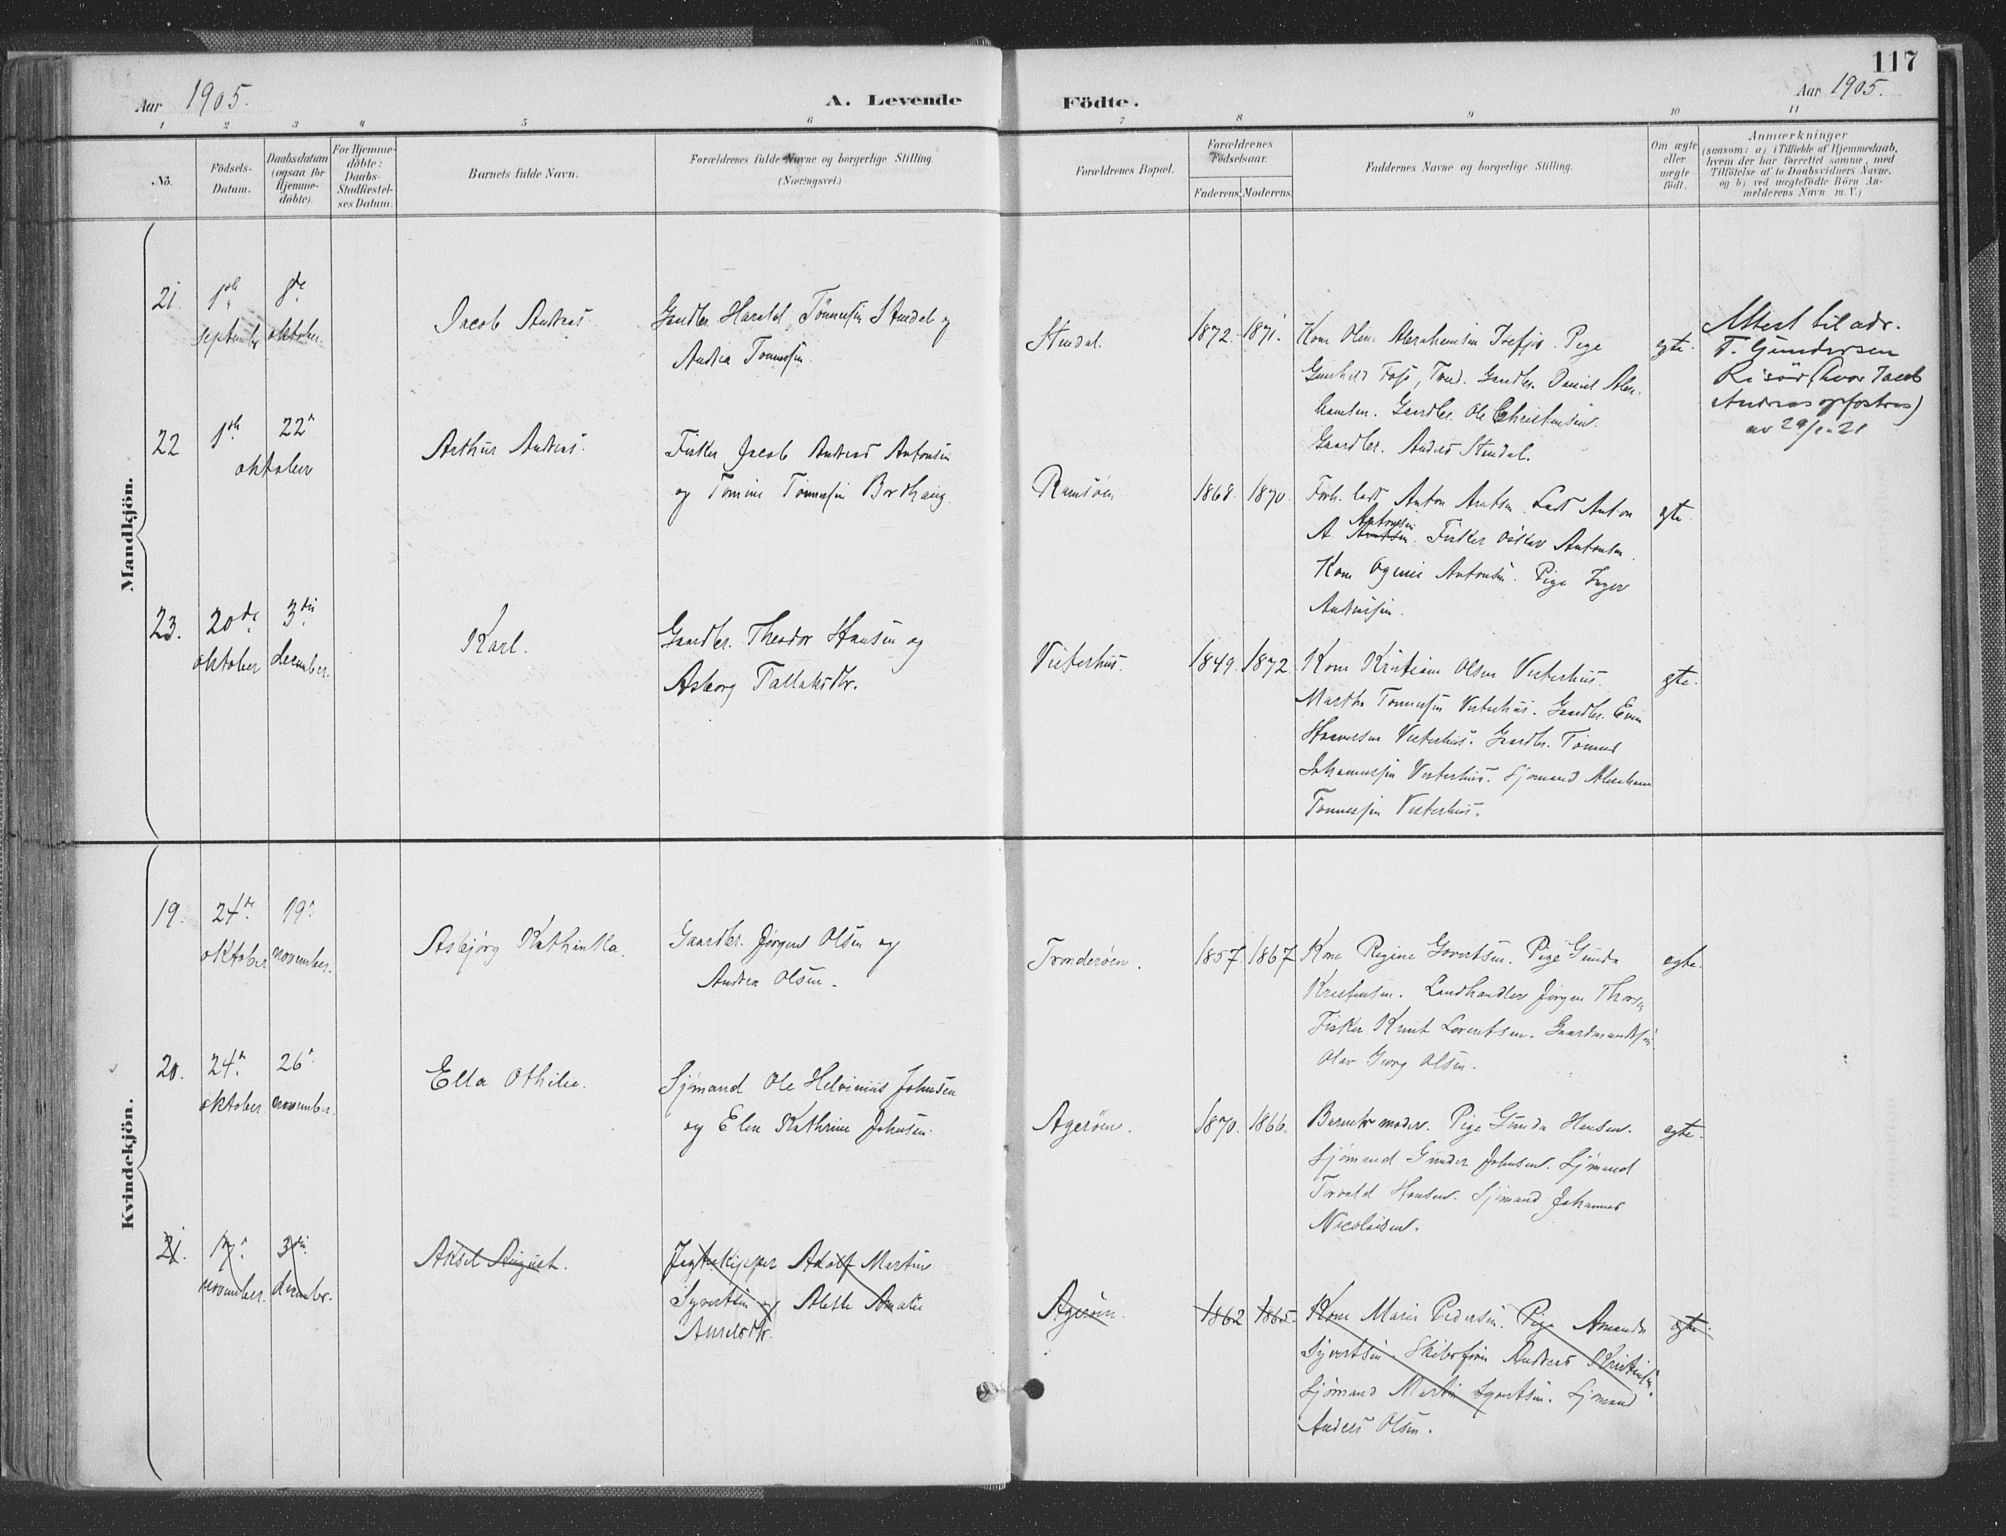 117
Aar 1905.
A. Levende Födte.
Aar 1905.
1 2 3 4 5 6 7 8 9 10 11
No.
Födsels-
Datum.
Daabsdatum
(ogsaa för
Hjemme-
döbte).
For Hjemme-
döbte:
Daabs-
Stadfæstel-
ses Datum.
Barnets fulde Navn.
Forældrenes fulde Navne og borgerlige Stilling.
(Næringsvei.)
Forældrenes Bopæl.
Forældrenes
Födselsaar.
Faderens. Moderens.
Faddernes Navne og borgerlige Stilling.
Om ægte
eller
uægte
födt.
Anmærkninger
(saasom: a) i Tilfælde af Hjemmedaab,
hvem der har forrettet samme, med
Tilföielse af to Daabsvidners Navne,
og b) ved uægtefödte Börn An-
melderens Navn m. V.)
Mandkjön.
21.
september
8de
oktober.
Jacob Andreas.
Gaardbr. Harald Tønnessen Stusdal og
Andrea Tønnessen
1872. 1871.
Kone Oline Abrahamsen Pige
Gunhild Foss, Gaardbr. Daniel Abra-
hamsen. Gaardbr. Ole Christensen.
Gaardbr. Anders
egte.
Attest til adr.
T. Gundersen
Risör (hvor Jacob
Andreas opfostres)
av 29/1-21
22
22
oktober
Arthur Andreas.
Fisker Jacob Andreas Antonsen
og Tomine Tønnessen Bordhaug.
Ramsøen
1868. 1870.
Anton Lods Anton
A. Antonsen. Fisker Oskar Antonsen.
Kone Antonsen. Pige Inger
Andreassen.
egte.
23.
20de
oktober
3die
december.
Karl.
Gaardbr. Theodor Hansen og
Asborg Tallaksdtr.
Vesterhus.
1849. 1872.
Kone Kristiane Olsen Vesterhus.
Martha Tønnessen Vesterhus. Gaardbr. Even
Haaversen Vesterhus. Gaardbr. Tønnes
Johannessen Vesterhus. Sjømand Abraham
Tønnessen Vesterhus.
egte.
Kvindekjön.
19.
24de
oktober
19
november.
Asbjörg Kathinka.
Gaardbr. Jørgen Olsen og
Andrea Olsen.
Tronderøen.
1857. 1867
Kone Regine Govertsen. Pige Gunda
Kristensen. Landhandler Jørgen Thorsen
Fisker Knut Lorentsen. Gaardmandssøn
Olav Georg Olsen.
egte.
20.
24
oktober
26
november.
Ella Othilie.
Sjømand Ole Helvinius Johnsen
og Elen Kathrine Johnsen.
Agerøen.
1870. 1866.
Barnets moder. Pige Gunda Hansen.
Sjømand Gunder Johnsen. Sjømand
Torvald Hansen. Sjømand Johannes
Nicolaisen.
egte.
21.
november.
3die
decmbr.
Aksel August.
Jagteskipper Adolf Martin
Syvertsen og Alette Amalie
Axelsdtr.
Agerøen.
1862 1865.
Kone Marie Pedersen. Pige Amanda
Syvertsen. Skibsfører Andreas Kristensen.
Sjømand Martin Syvertsen. Sjømand
Anders Olsen.
egte.